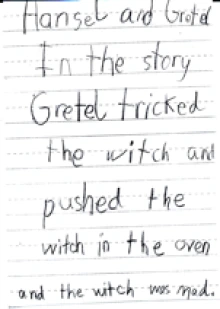 Hansel and Gretel
In the story
Gretel tricked
the witch and
pushed the
witch in the oven
and the witch was mad.